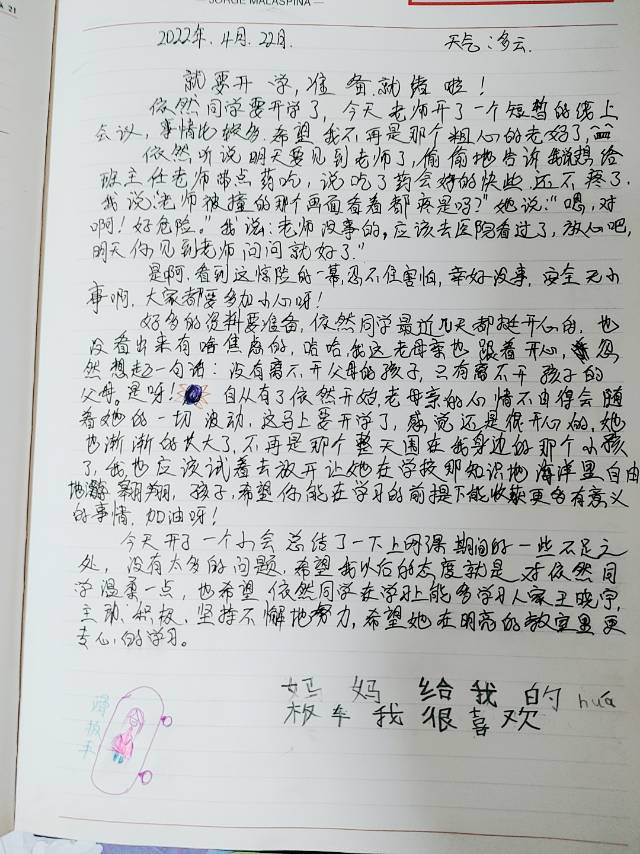 JORGE MALASPINA
21
2022年.4月.22日. 天气:多云.
就要开学,准备就绪啦!
依然同学要开学了,今天老师开了一个短暂的线上
会议,事情也挺多.希望我不再是那个粗心的老妈了,
依然听说明天要见到老师了,偷偷地告诉我说想给
班主任老师带点药吃,说吃了药会好的快些.还不疼了.
我说:老师被撞的那个画面看着都疼是吗?"她说:"嗯,对
啊!好危险。"我说:老师没事的,应该去医院看过了,放心吧,
明天你见到老师问问就好了."
是啊,看到这惊险的一幕,忍不住害怕,幸好没事,安全无小
事啊,大家都要多加小心呀!
好多的资料要准备,依然同学最近几天都挺开心的,也
没看出来有啥焦虑的,哈哈,我这老母亲也跟着开心,忽
然想起一句话:没有离不开父母的孩子,只有离不开孩子的
父母。是呀! 自从有了依然开始,老母亲的心情不由得会随
着她的一切波动,这马上要开学了,感觉还是很开心的,她
也渐渐的长大了,不再是那个整天围在我身边的那个小孩
了,我也应该试着去放开让她在学校那知识地海洋里自由
地翱翔,孩子,希望你能在学习的前提下能收获更多有意义
的事情.加油呀!
今天开了一个小会总结了一下上网课期间的一些不足之
处,没有太多的问题,希望我以后的态度就是对依然同
学温柔一点,也希望依然同学在学习上能多学习人家王晓宇,
主动、积极、坚持不懈地努力,希望她在明亮的教室里更
专心的学习。
妈妈给我的huá
板车我很喜欢
滑板车